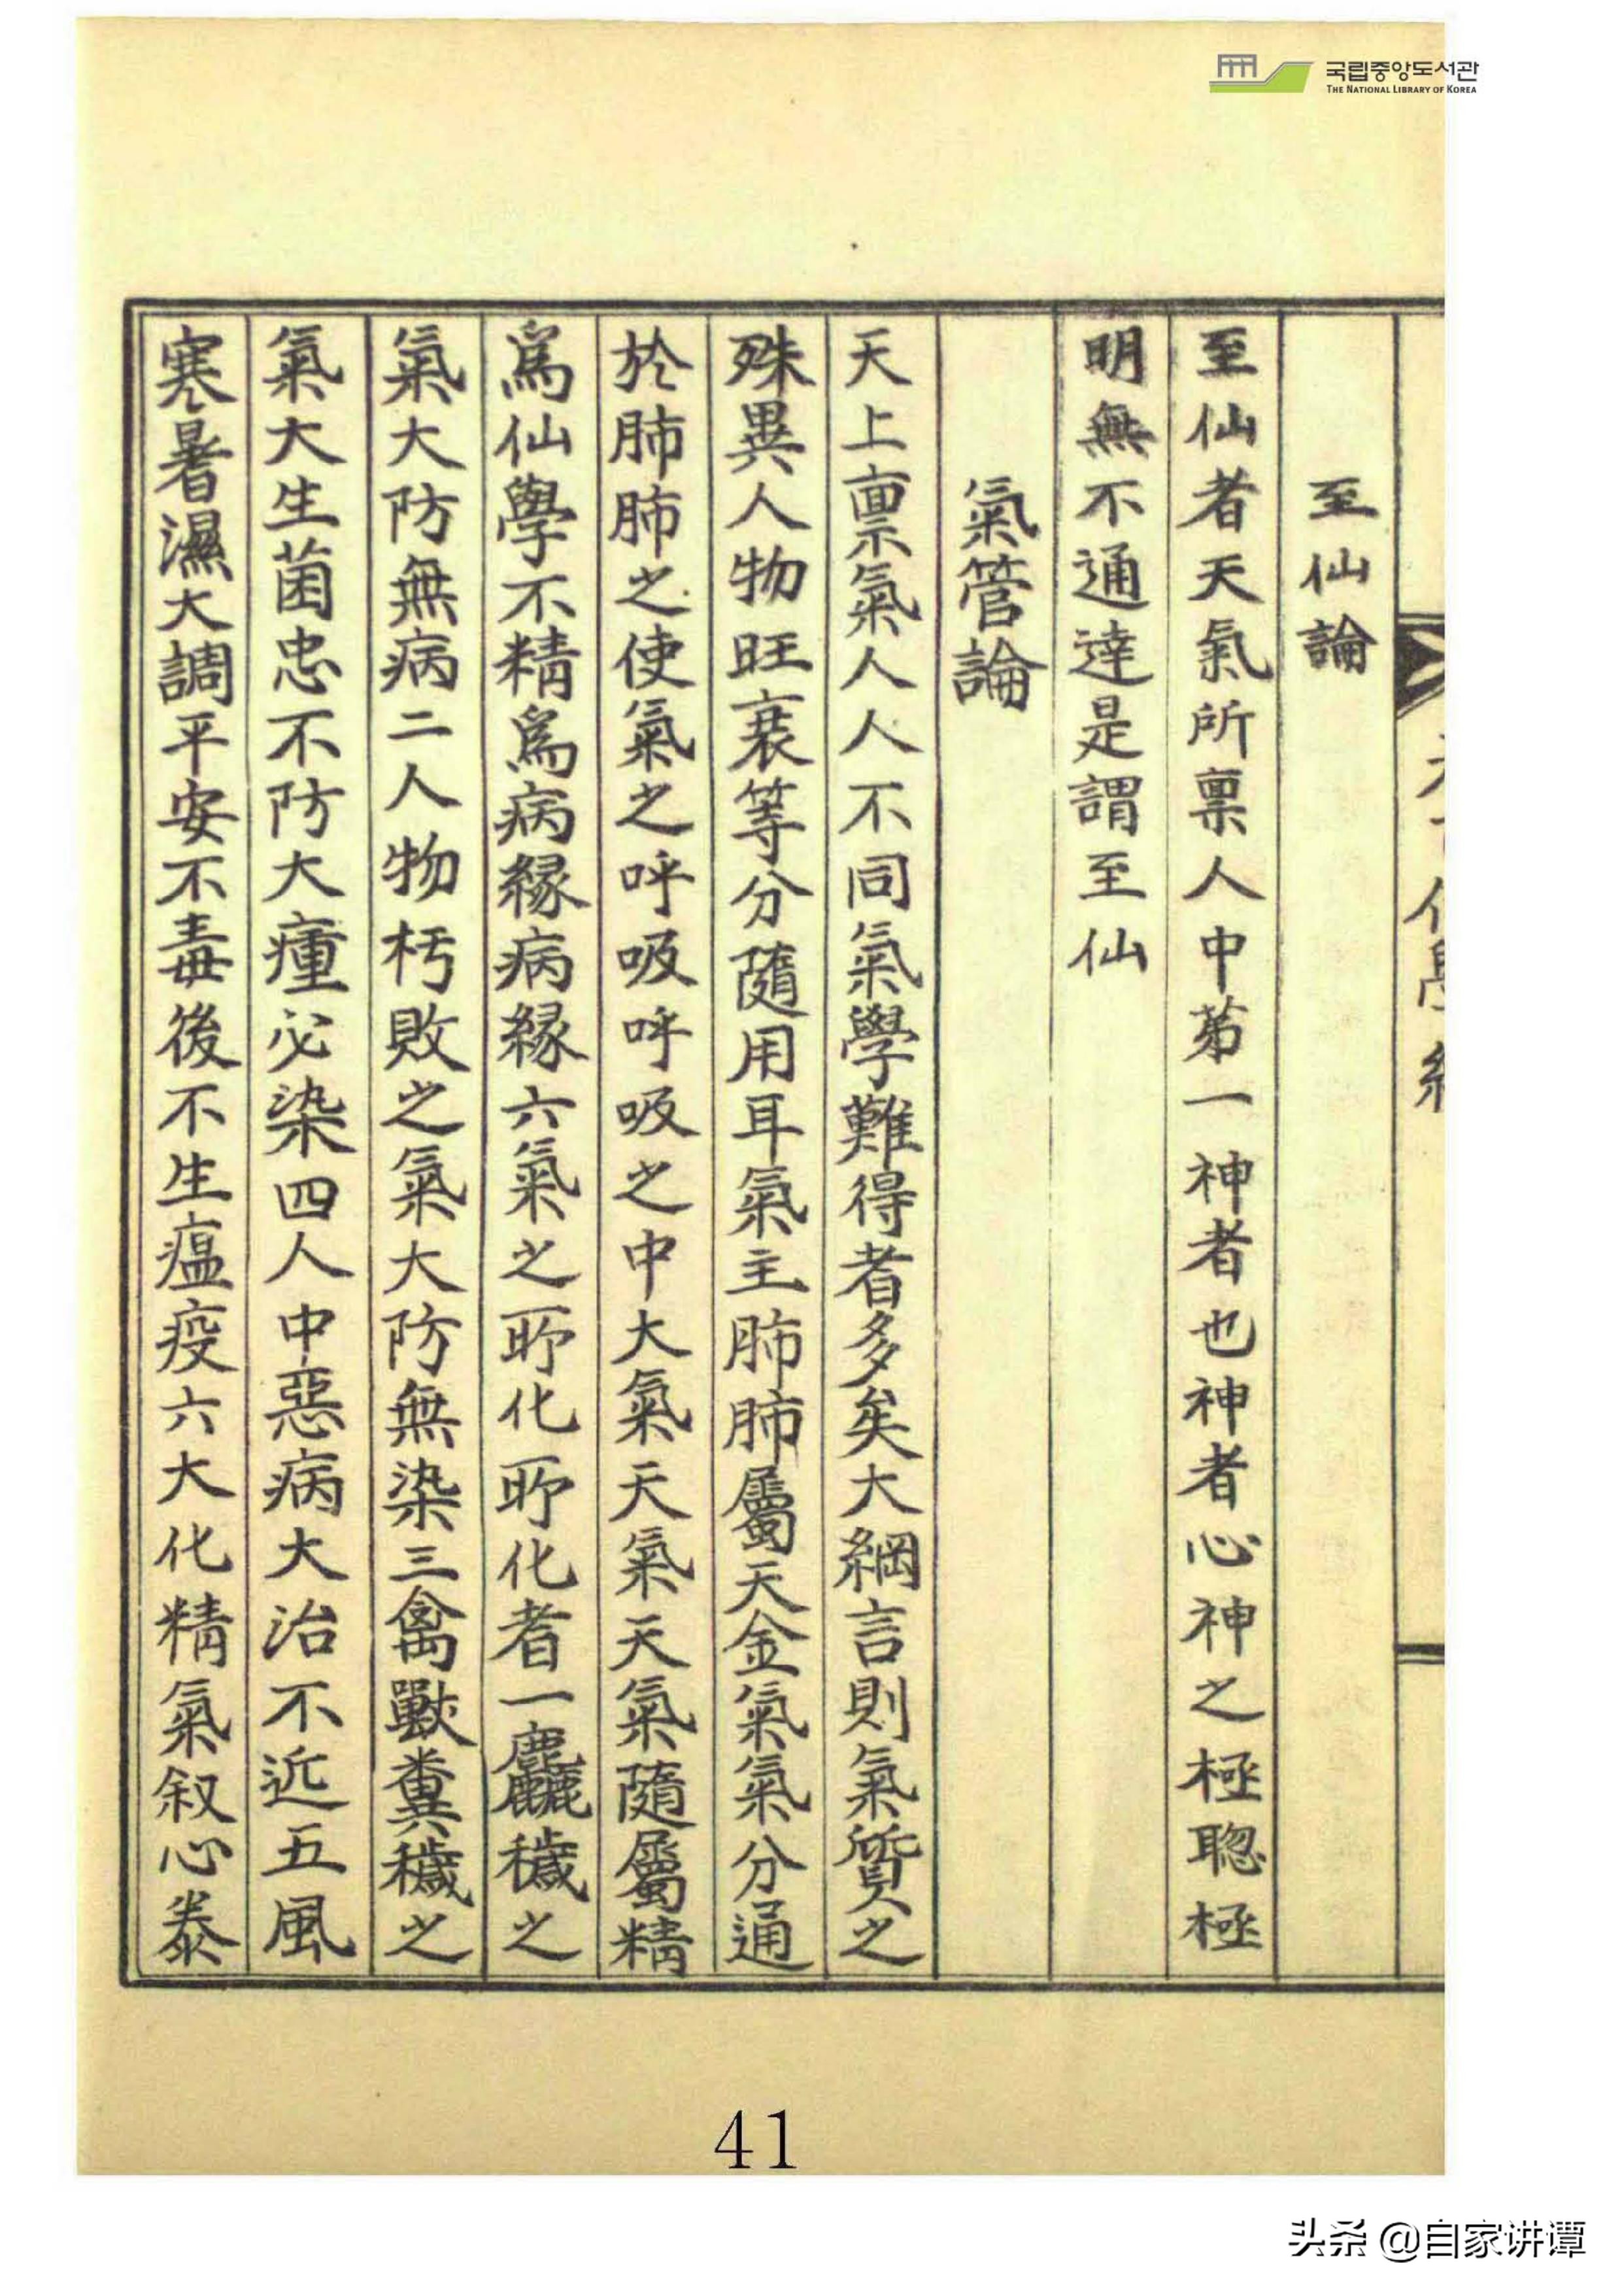 국립중앙도서관
THE NATIONAL LIBRARY OF KOREA
至仙論
至仙者天氣所禀人中第一神者也神者心神之極聰極
明無不通達是謂至仙
氣管論
天上禀氣人人不同氣學難得者多矣大綱言則氣質之
殊異人物旺衰等分隨用耳氣主肺肺屬天金氣氣分通
於肺肺之使氣之呼吸呼吸之中大氣天氣天氣隨屬精
爲仙學不精爲病緣病緣六氣之所化所化者一麤穢之
氣大防無病二人物朽敗之氣大防無染三禽獸糞穢之
氣大生菌忠不防大瘇必染四人中惡病大治不近五風
寒暑濕大調平安不毒後不生瘟疫六大化精氣叙心泰
41
头条 @自家讲谭